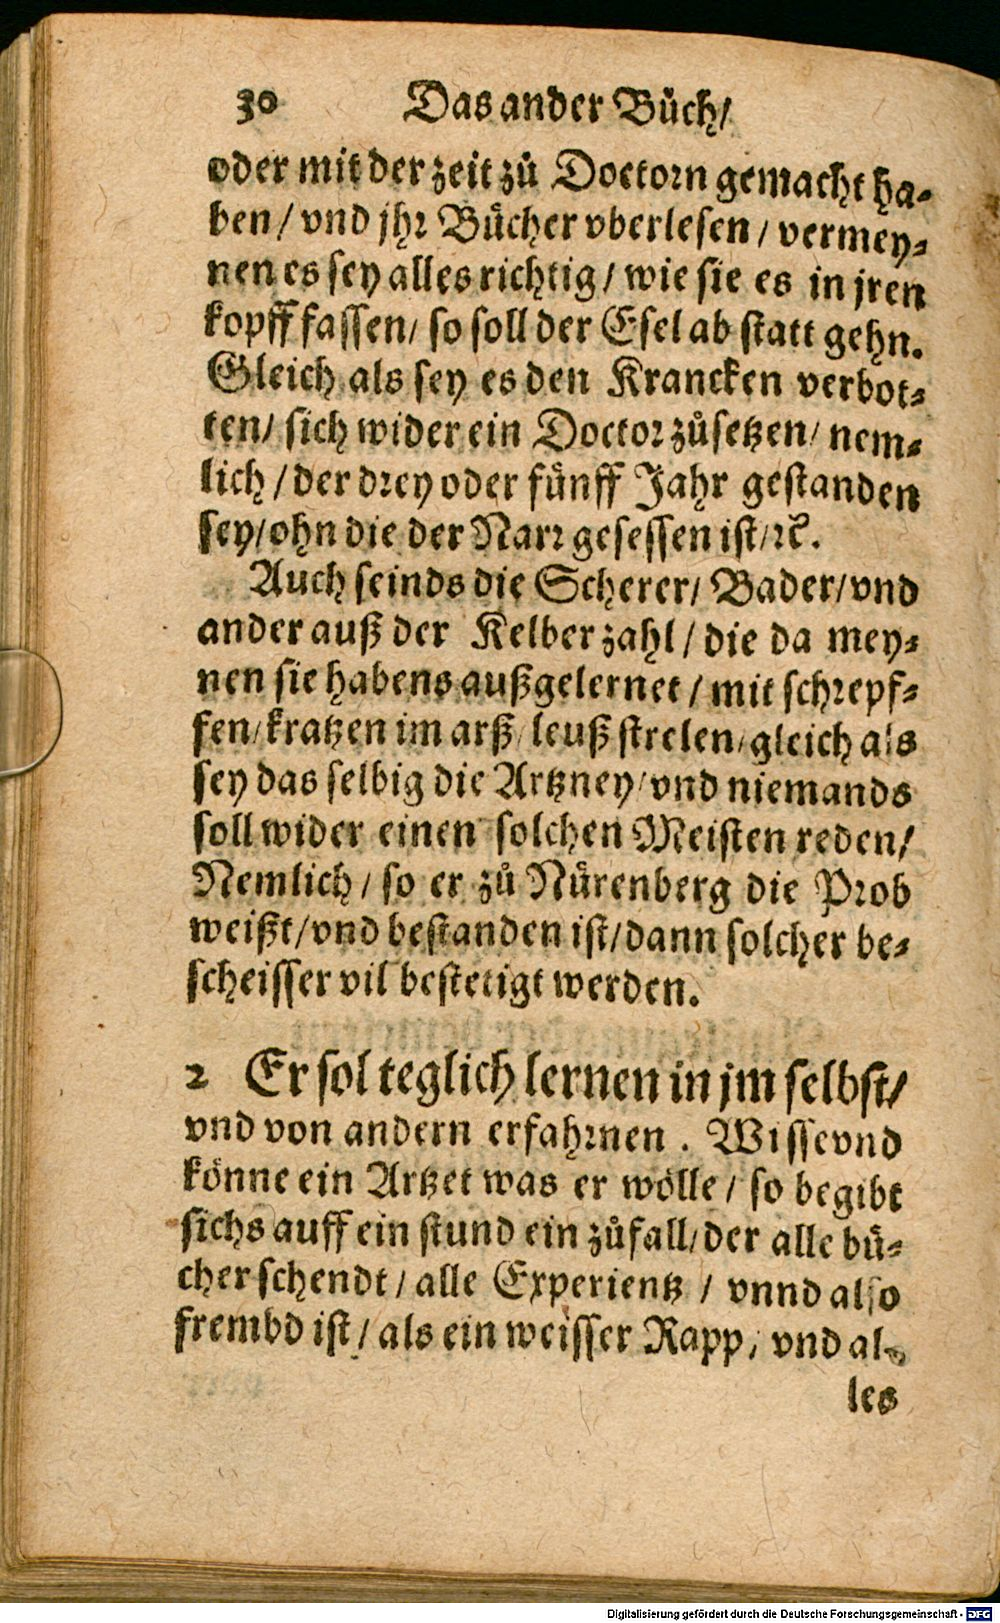 30 Das ander Bůch/
oder mit der zeit zů Doctorn gemacht ha⸗
ben / vnd jhr Bücher vberlesen / vermey⸗
nen es sey alles richtig / wie sie es in jren
kopff fassen / so soll der Esel ab statt gehn.
Gleich als sey es den Krancken verbot⸗
ten / sich wider ein Doctor zůsetzen / nem⸗
lich / der drey oder fünff Jahr gestanden
sey / ohn die der Narr gesessen ist / ꝛc.
Auch seinds die Scherer / Bader / vnd
ander auß der Kelber zahl / die da mey⸗
nen sie habens außgelernet / mit schrepf⸗
fen / kratzen im arß / leuß strelen / gleich als
sey das selbig die Artzney / vnd niemands
soll wider einen solchen Meisten reden /
Nemlich / so er zů Nürenberg die Prob
weißt / vnd bestanden ist / dann solcher be⸗
scheisser vil bestetigt werden.
2 Er sol teglich lernen in jm selbst /
vnd von andern erfahrnen . Wisse vnd
könne ein Artzet was er wölle / so begibt
sichs auff ein stund ein zůfall / der alle bü⸗
cher schendt / alle Experientz / vnnd also
frembd ist / als ein weisser Rapp / vnd al⸗
les
Digitalisierung gefördert durch die Deutsche Forschungsgemeinschaft - DFG